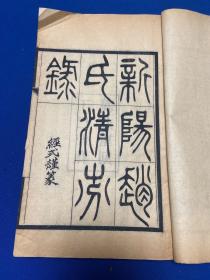 新陽趙
氏清芬
錄
經謹篆